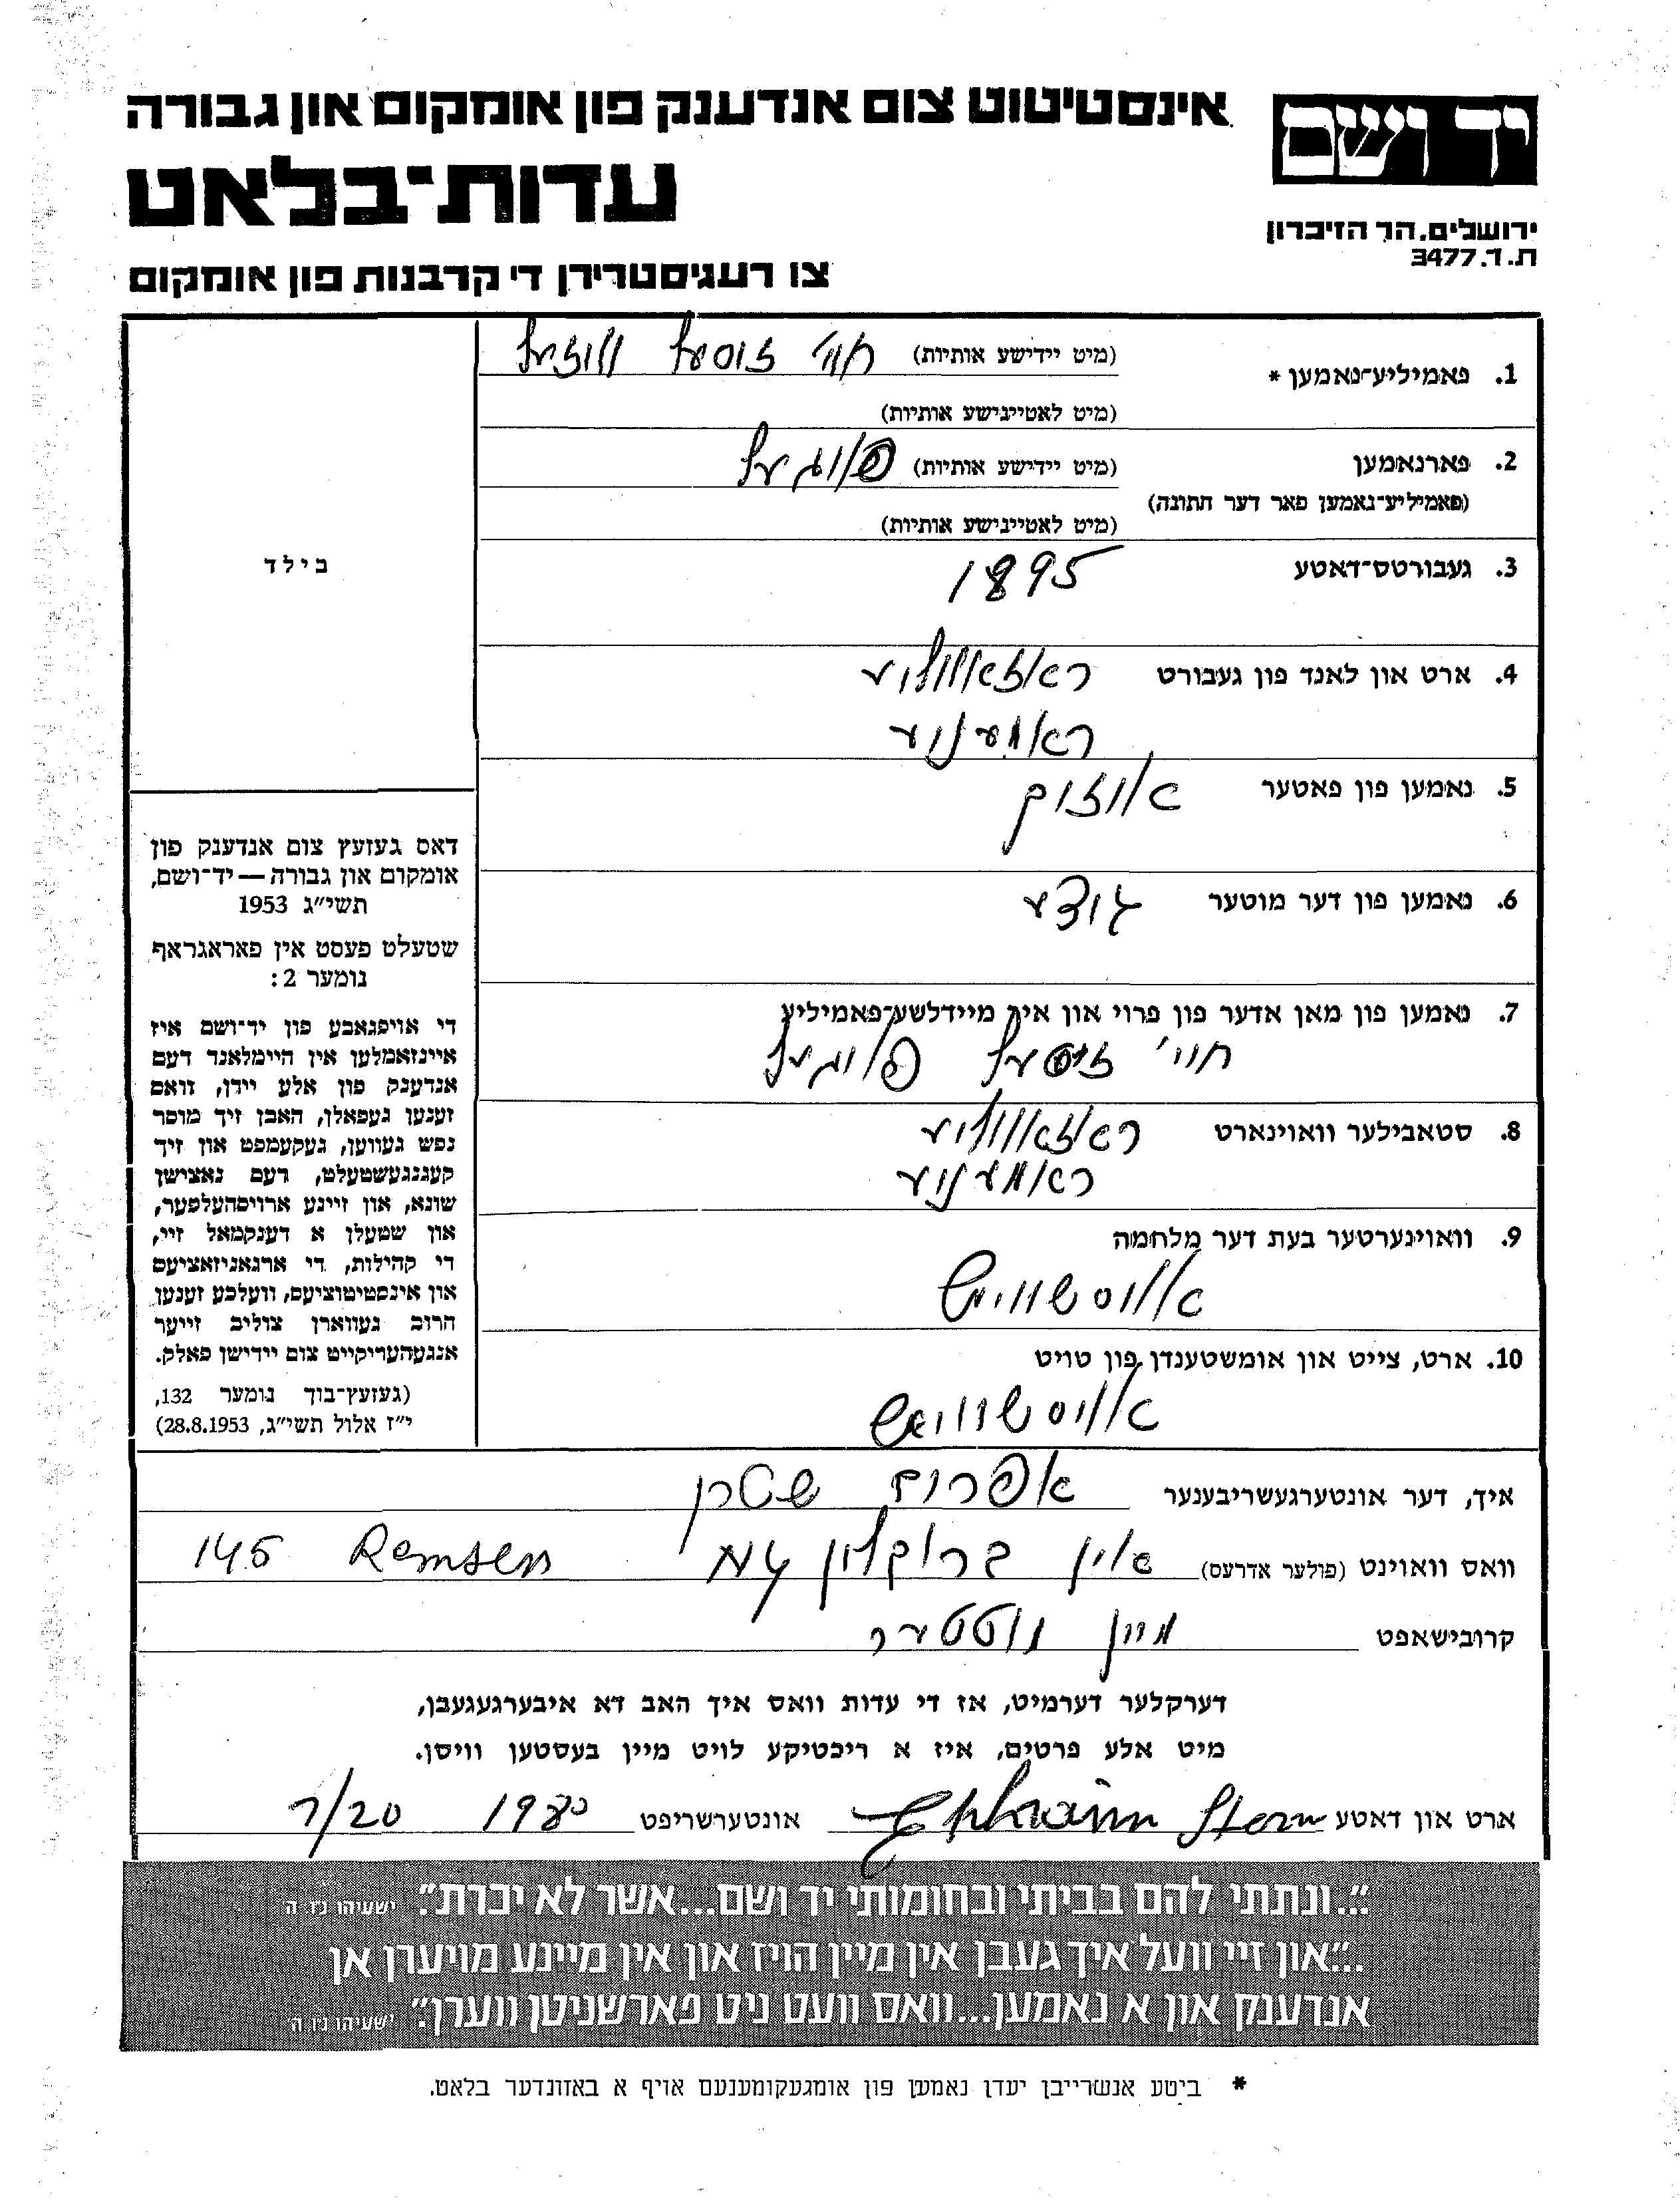 אינסטיטוט צום אנדענק פון אומקום און גבורה
יד ושם
עדות־בלאט
ירושלים, הר הזיכרון
ת.ד. 3477
צו רעגיסטרירן די קרבנות פון אומקום
1. פאמיליע־נאמען * (מיט יידישע אותיות) חוי' זיסעל
(מיט לאטייבישע אותיות)
2. פארנאמען (מיט יידישע אותיות) פויגעל
(פאמיליע־נאמען פאר דער חתונה)
(מיט לאטייבישע אותיות)
3. געבורטס־דאטע 1895
4. ארט און לאנד פון געבורט ראזאווליע
ראמעניע
5. נאמען פון פאטער אייזיק
6. נאמען פון דער מוטער
7. נאמען פון מאן אדער פון פרוי און איר מיידלשע־פאמיליע
חוי' זיסעל פויגעל
8. סטאבילער וואוינארט ראזאווליע
ראמעניע
9. וואוינערטער בעת דער מלחמה
אויסשוויץ
10. ארט, צייט און אומשטענדן פון טויט
אויסשוויץ
בילד
דאס געזעץ צום אנדענק פון
אומקום און גבורה — יד־ושם,
תשי״ג 1953
שטעלט פעסט אין פאראגראף
נומער 2:
די אויפגאבע פון יד־ושם איז
איינזאמלען אין היימלאנד דעם
אנדענק פון אלע יידן, וואס
זענען געפאלן, האבן זיך מוסר
נפש געווען, געקעמפט און זיך
קעגנגעשטעלט, דעם נאצישן
שונא, און זיינע ארויסהעלפער,
און שטעלן א דענקמאל זיי,
די קהילות, די ארגאניזאציעס
און אינסטיטוציעס, וועלכע זענען
חרוב געווארן צוליב זייער
אנגעהעריקייט צום יידישן פאלק.
(געזעץ־בוך נומער 132,
י״ז אלול תשי״ג, 28.8.1953)
איך, דער אונטערגעשריבענער אפרים שטרן
וואס וואוינט (פולער אדרעס) אין ברוקלין NY 145 Remsen
קרובישאפט מיין מוטטער
דערקלער דערמיט, אז די עדות וואס איך האב דא איבערגעגעבן,
מיט אלע פרטים, איז א ריכטיקע לויט מיין בעסטען וויסן.
ארט און דאטע Ephraim Stern אונטערשריפט 1980 7/20
״...ונתתי להם בביתי ובחומותי יד ושם...אשר לא יכרת״. ישעיהו נ״ו ה
...״און זיי וועל איך געבן אין מיין הויז און אין מיינע מויערן אן
אנדענק און א נאמען...וואס וועט ניט פארשניטן ווערן״. ישעיהו נ״ו ה׳
* ביטע אנשרייבן יעדן נאמען פון אומגעקומענעם אויף א באזונדער בלאט.